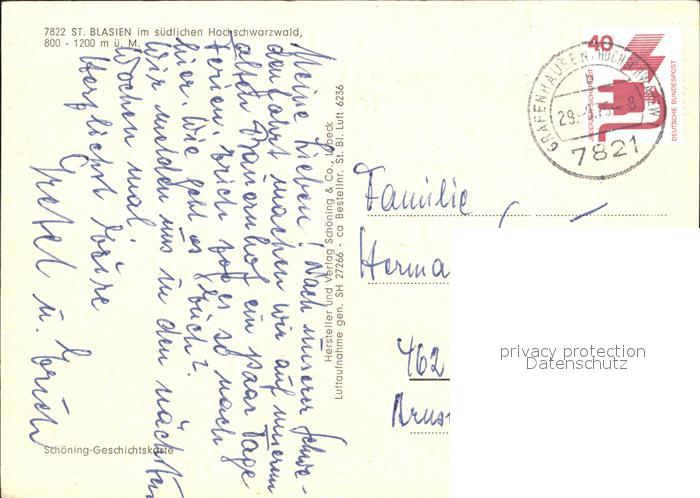 7822 ST. BLASIEN im südlichen Hochschwarzwald,
800 - 1200 m ü. M.
Meine Lieben! Nach unserer Schwe-
denfahrt machen wir auf unserem
alten Bauernhof ein paar Tage
Ferien. Erich zog es so nach
hier. Wie geht es Euch?
Wir melden uns in den nächsten
Wochen mal.
Herzlichst Eure
Gretel u. Erich
Schöning-Geschichtskarte
Hersteller und Verlag Schöning & Co., Lübeck
Luftaufnahme gen. SH 27266 - ca Bestellnr. St. Bl. Luft 6236
40
DEUTSCHE BUNDESPOST
GRAFENHAUSEN
b
7821
Familie
Herma
462
privacy protection
Datenschutz